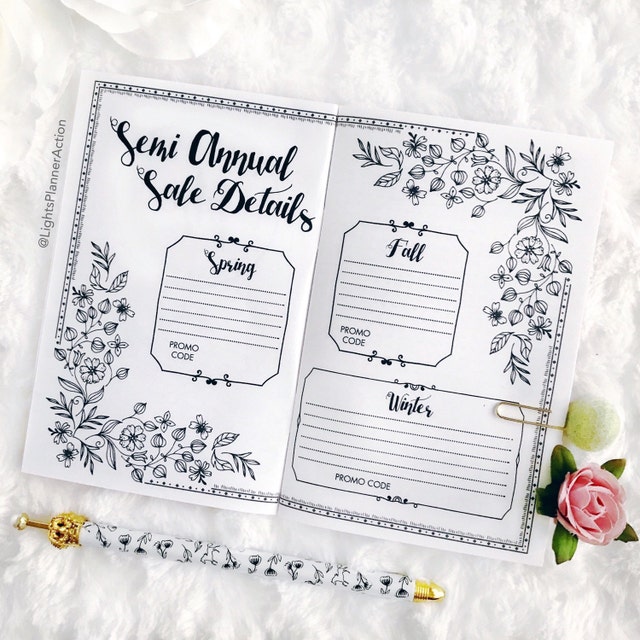 @LightsPlannerAction
Semi Annual
Sale Details
Spring
PROMO
CODE
Fall
PROMO
CODE
Winter
PROMO CODE